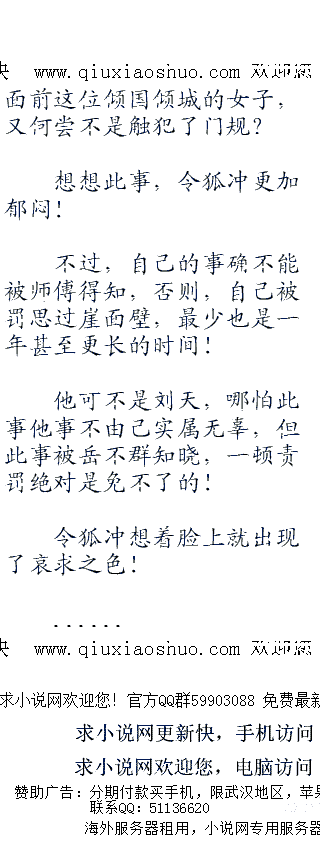 快 www.qiuxiaoshuo.com 欢迎您
面前这位倾国倾城的女子，
又何尝不是触犯了门规？
想想此事，令狐冲更加
郁闷！
不过，自己的事确不能
被师傅得知，否则，自己被
罚思过崖面壁，最少也是一
年甚至更长的时间！
他可不是刘天，哪怕此
事他事不由己实属无辜，但
此事被岳不群知晓，一顿责
罚绝对是免不了的！
令狐冲想着脸上就出现
了哀求之色！
......
快 www.qiuxiaoshuo.com 欢迎您
求小说网欢迎您！官方QQ群59903088 免费最新
求小说网更新快，手机访问
求小说网欢迎您，电脑访问
赞助广告：分期付款买手机，限武汉地区，苹果
联系QQ：51136620
海外服务器租用，小说网专用服务器